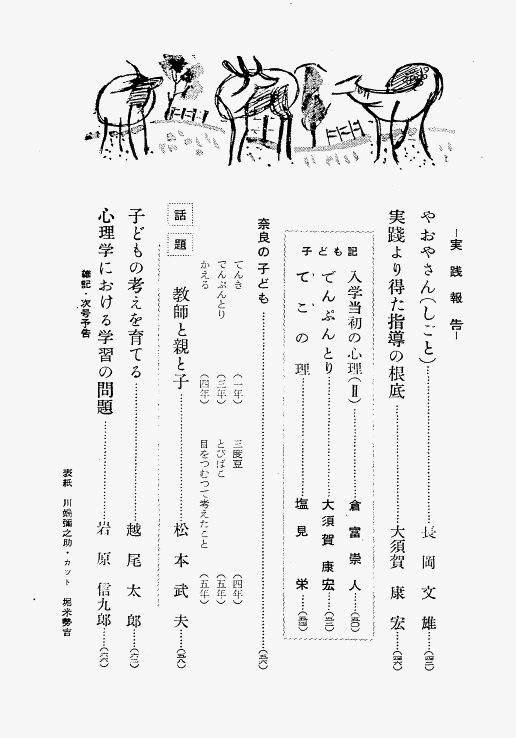 ―実践報告―
やおやさん(しごと)……長岡文雄……(四二)
実践より得た指導の根底……大須賀康宏……(四六)
子ども記
入学当初の心理(Ⅱ)……倉富崇人……(五〇)
でんぷんとり……大須賀康宏……(五二)
てこの理……塩見栄……(五四)
奈良の子ども……(五六)
てんき(一年) 三度豆(四年)
でんぷんとり(三年) とびばこ(五年)
かえる(四年) 目をつむつて考えたこと(五年)
話題
教師と親と子……松本武夫……(五八)
子どもの考えを育てる……越尾太郎……(六二)
心理学における学習の問題……岩原信九郎……(六六)
雑記・次号予告
表紙 川端彌之助・カット 堀米勢吉